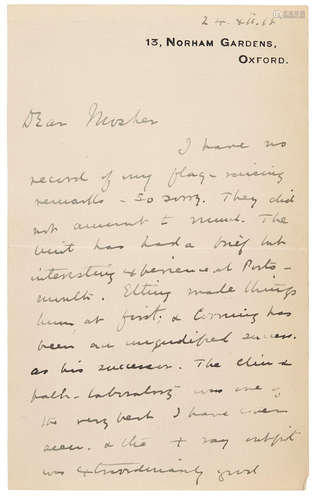 24 xii. 18
13, NORHAM GARDENS,
OXFORD.
Dear Mosher
I have no
record of my flag-raising
remarks - so sorry. They did
not amount to much. The
unit has had a brief but
interesting experience at Ports-
mouth. Elting made things
hum at first; & Corning has
been an unqualified success
as his successor. The clin &
path - laboratory was one of
the very best I have ever
seen. & the x ray outfit
was extraordinarily good